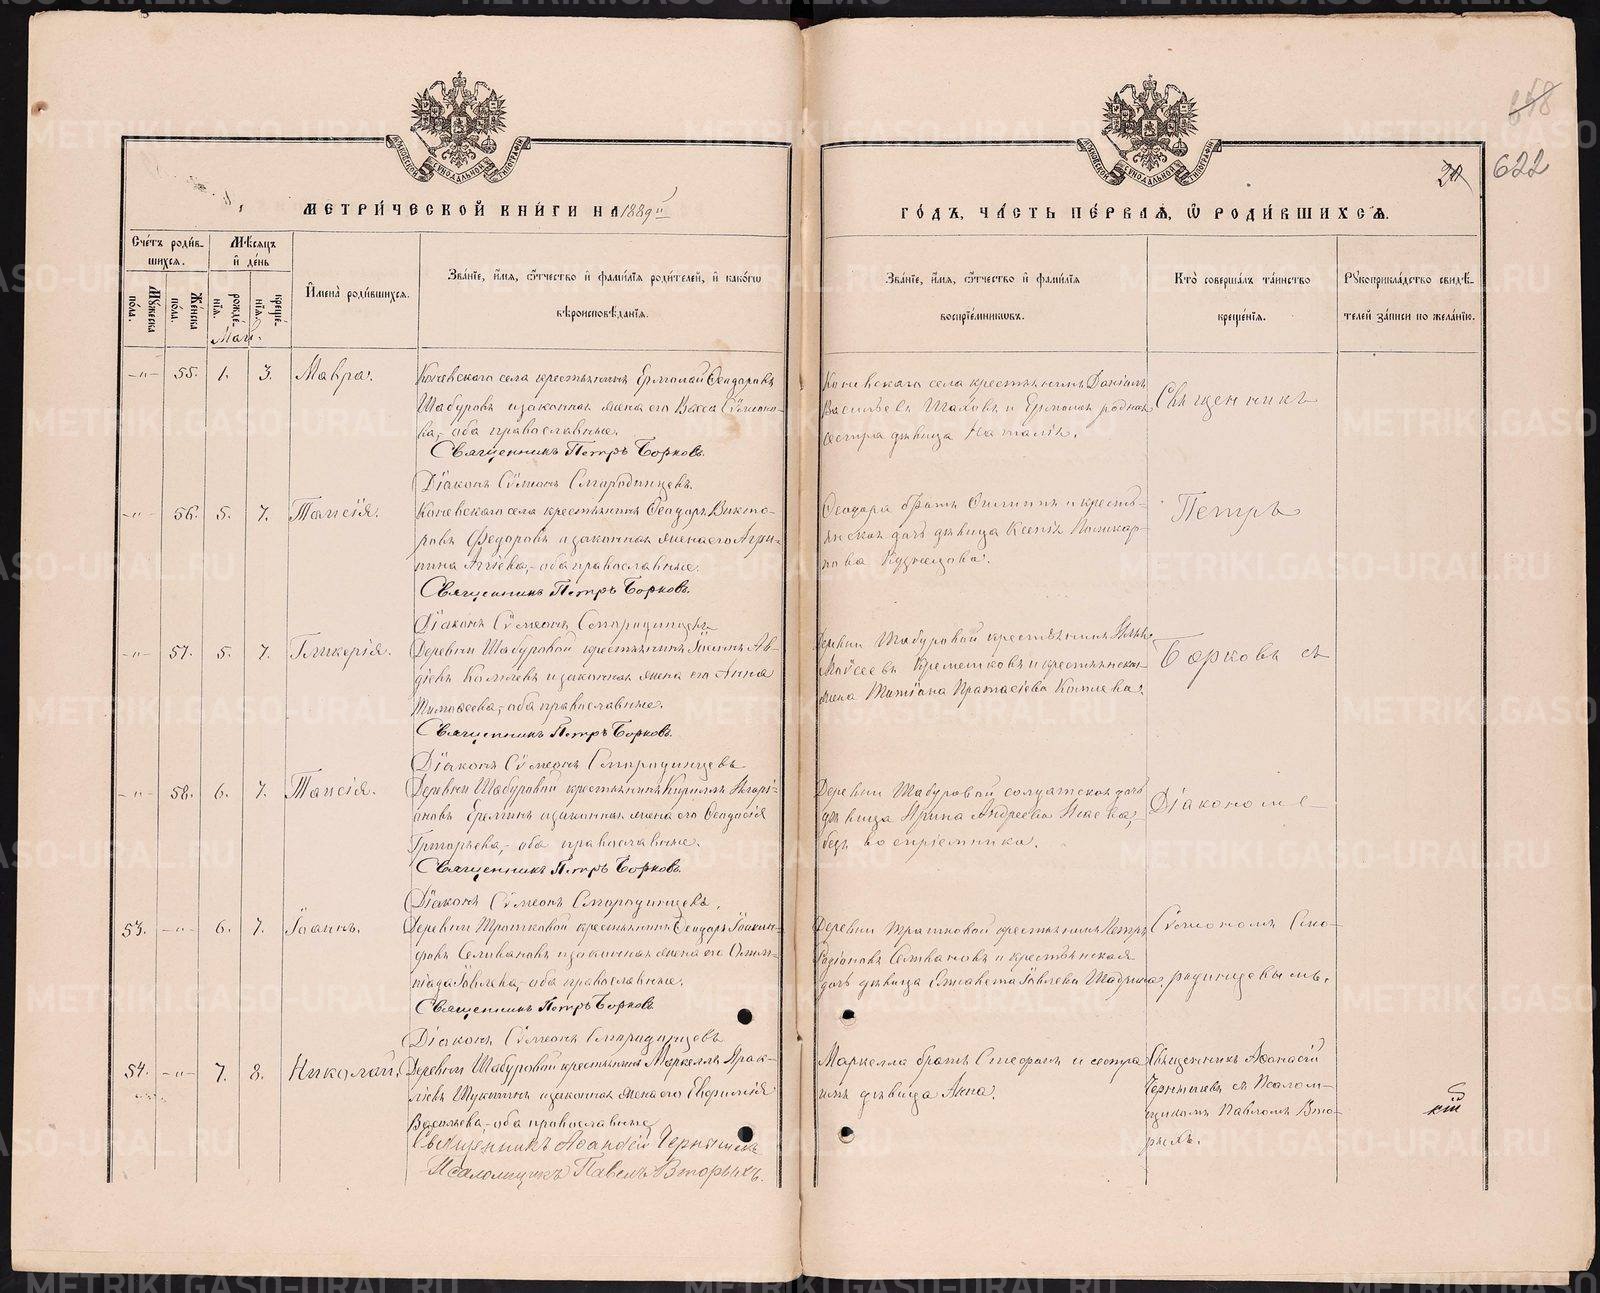 648
20
622
МЕТРИ́ЧЕСКОЙ КНИ́ГИ НА 1889 й
ГО́ДЪ, ЧА́СТЬ ПЕ́РВАѦ, Ѡ РОДИ́ВШИХСѦ.
Сче́тъ роди́вшихсѧ.
Мꙋ́жеска по́ла.
Же́нска по́ла.
Мѣ́сѧцъ и҆ де́нь
рожде́нїѧ.
креще́нїѧ.
И҆мена̀ роди́вшихсѧ.
Зва́нїе, и҆́мѧ, ѻ҆́тчество и҆ фами́лїѧ роди́телей, и҆ како́гѡ
вѣроисповѣ́данїѧ.
Зва́нїе, и҆́мѧ, ѻ҆́тчество и҆ фами́лїѧ
воспрїе́мникѡвъ.
Кто̀ соверша́лъ та́инство
креще́нїѧ.
Рꙋкоприкла́дство свидѣ́телей за́писи по жела́нїю.
Май.
-"- 55. 1. 3. Мавра.
Коневскаго села крестьянинъ Ермолай Ѳеодоровъ
Шабуровъ и законная жена его Васса Сѵмеонова,- оба православные.
Священникъ Петръ Борковъ.
Дїаконъ Сѵмеонъ Смородинцевъ.
Коневскаго села крестьянинъ Данїилъ
Васильевъ Шаховъ и Ермолая родная
сестра дѣвица Наталія.
Священникъ
-"- 56. 5. 7. Таисія.
Коневскаго села крестьянинъ Ѳеодоръ Викторовъ Федоровъ и законная жена его Агриппина Агіева,- оба православные.
Священникъ Петръ Борковъ.
Дїаконъ Сѵмеонъ Смородинцевъ
Ѳеодора братъ Филиппъ и крестьянская дочь дѣвица Ксенія Поликарпова Кузнецова.
Петръ
-"- 57. 5. 7. Гликерія.
Деревни Шабуровой крестьянинъ Іоаннъ Авдіевъ и законная жена его Анна
Тимоѳеева,- оба православные.
Священникъ Петръ Борковъ.
Дїаконъ Сѵмеонъ Смородинцевъ
Деревни Шабуровой крестьянинъ
Моѵсеевъ и крестьянская
жена Татіана Протасіева
Борковъ съ
-"- 58. 6. 7. Таисія.
Деревни Шабуровой крестьянинъ Кириллъ Иларіоновъ Ереминъ и законная жена его Ѳеодосія
Григорьева,- оба православные.
Священникъ Петръ Борковъ.
Дїаконъ Сѵмеонъ Смородинцевъ.
Деревни Шабуровой солдатская дочь
дѣвица Ирина Андреева Исаева,
безъ воспріемника.
Дїакономъ
53. -"- 6. 7. Іоаннъ.
Деревни Трошковой крестьянинъ Ѳеодоръ Селивановъ и законная жена его Олимпіада Іовлева,- оба православные.
Священникъ Петръ Борковъ
Дїаконъ Сѵмеонъ Смородинцевъ
Деревни Трошковой крестьянинъ Петръ
Родіоновъ Селивановъ и крестьянская
дочь дѣвица Елисавета Іовлева
Сѵмеономъ Смородинцевымъ.
54. -"- 7. 8. Николай.
Деревни Шабуровой крестьянинъ Маркеллъ Ираклїевъ Щукинъ и законная жена его Евфимія
Васильева,- оба православные
Священникъ Аѳанасій Чернышевъ
Псаломщикъ Павелъ Вторыхъ.
Маркелла братъ Стефанъ и сестра
ихъ дѣвица Анна.
Священникъ Аѳанасій
Чернышевъ съ Псаломщикомъ Павломъ Вторыхъ.
METRIKI.GASO-URAL.RU